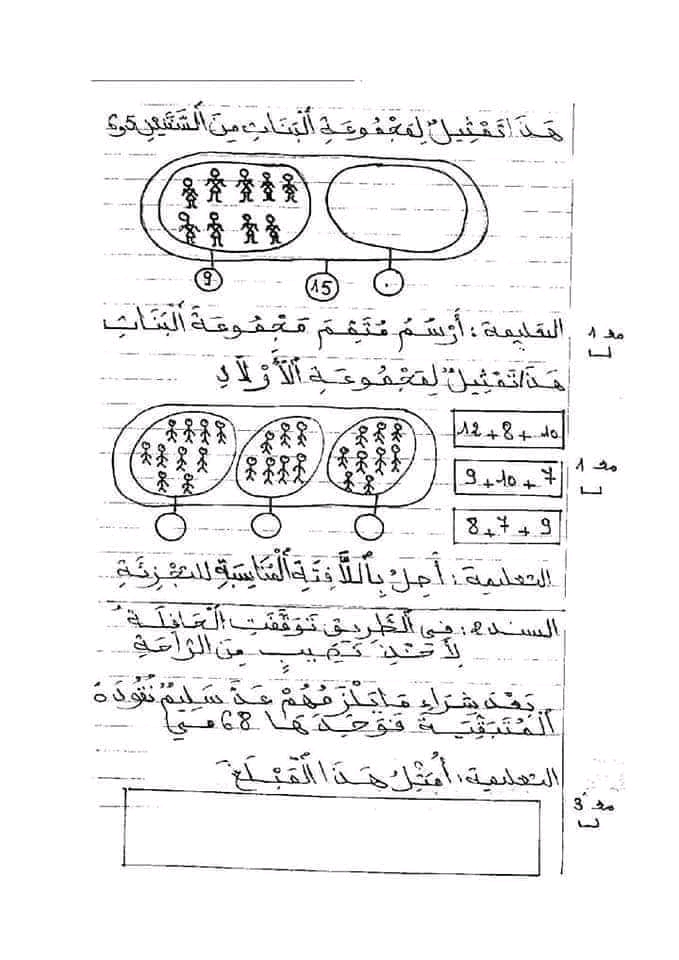 هَذَا تَمْثِيلٌ لِمَجْمُوعَةِ الْبَنَاتِ مِنَ السَّنَتَيْنِ 5 و 6
9
15
.
التعليمة : أَرْسُمُ مُتَمِّمَ مَجْمُوعَةَ الْبَنَاتِ
مع 1
هَذَا تَمْثِيلٌ لِمَجْمُوعَةِ الْأَوْلَادِ
12 + 8 + 10
9 + 10 + 7
مع 1
8 + 7 + 9
التعليمة : أَصِلُ بِاللَّافِتَةِ الْمُنَاسِبَةِ للتجْزِئَةِ
السند 2 : فِي الطَّرِيقِ تَوَقَّفَتِ الْحَافِلَةُ
لِأَخْذِ نَصِيبٍ مِنَ الرَّاحَةِ
بَعْدَ شِرَاءِ مَا يَلْزَمُهُمْ عَدَّ سَلِيمٌ نُقُودَهُ
الْمُتَبَقِّيَةَ فَوَجَدَهَا 68 مي
التعليمة : أُمَثِّلُ هَذَا الْمَبْلَغَ
مع 3